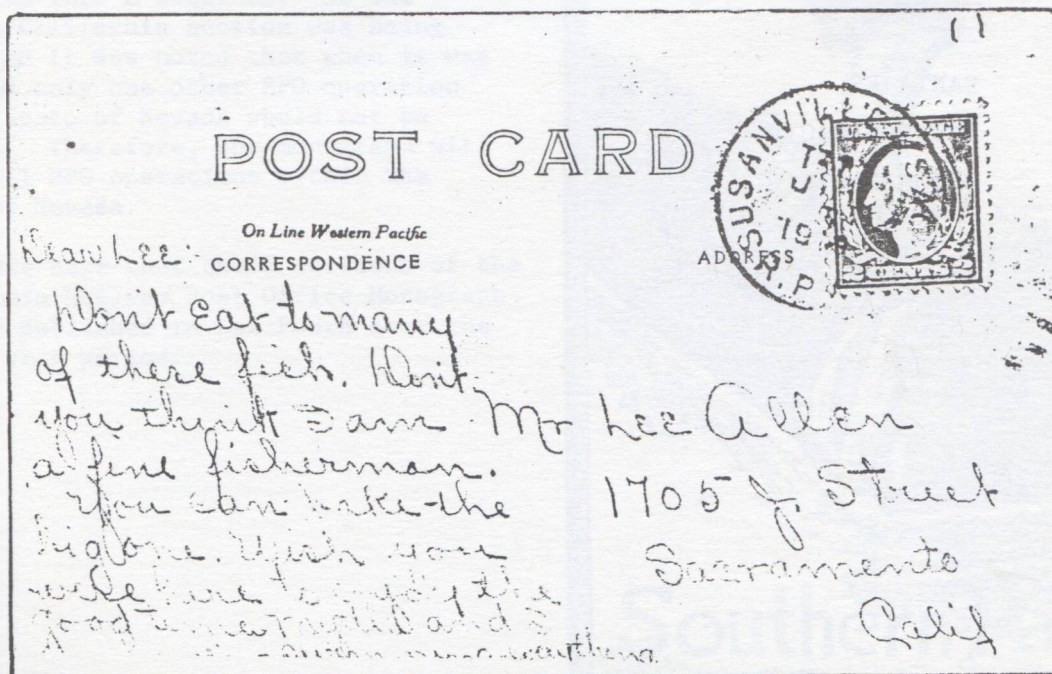 11
POST CARD
On Line Western Pacific
CORRESPONDENCE
ADDRESS
SUSANVILLE
R.P
19
Dear Lee:
Dont Eat to many
of there fish. Dont
you think I am
a fine fisherman.
You can bake the
big one. Wish you
were here to enjoy the
good time and I
Mr Lee Allen
1705 J. Street
Sacramento
Calif
Southern